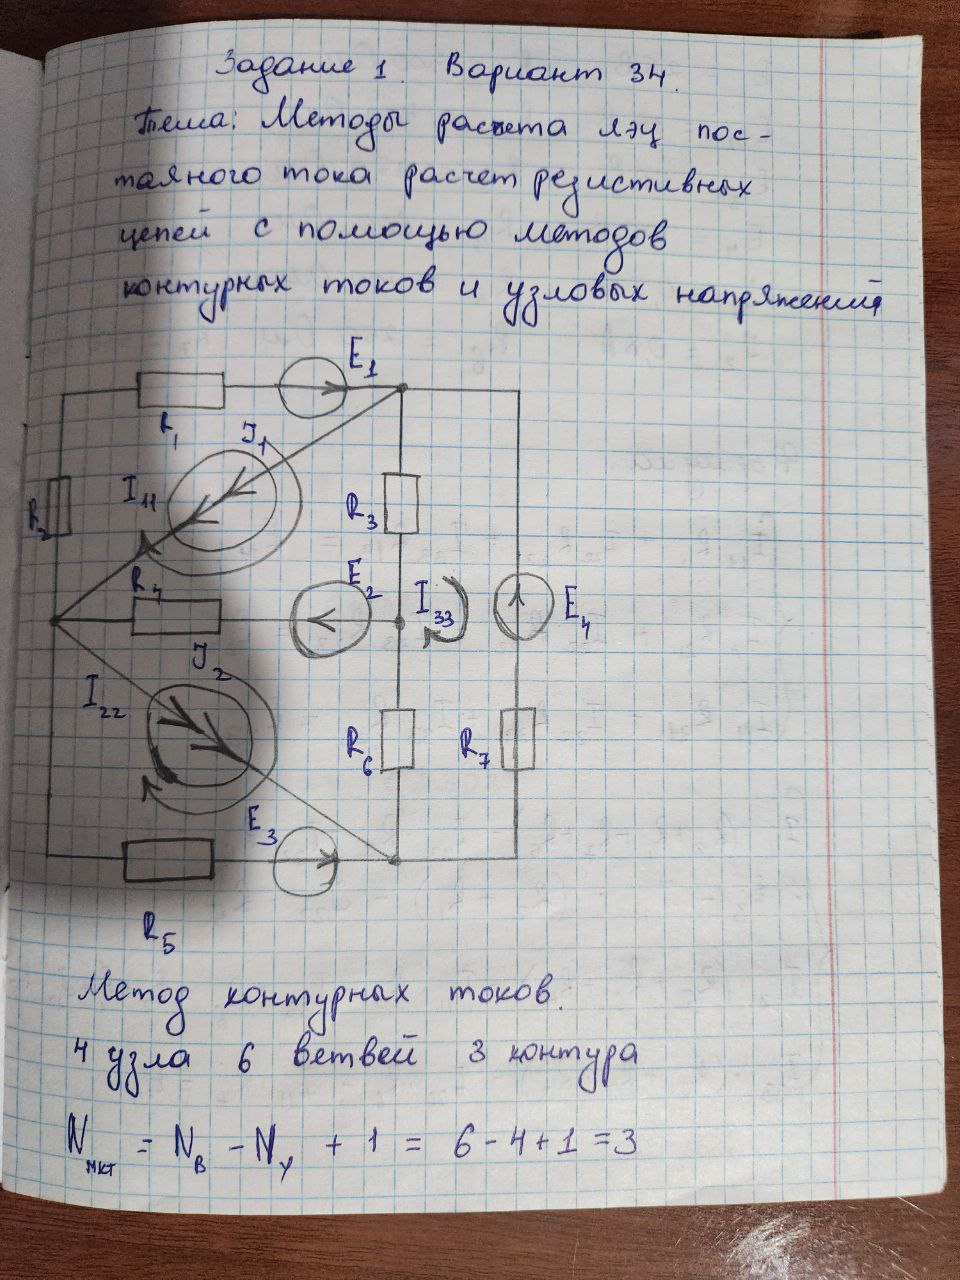 Задание 1. Вариант 34.
Тема: Методы расчета лэц пос-
таяного тока расчет резистивных
цепей с помощью методов
контурных токов и узловых напряжений
E1
R1
J1
I11
R2
R3
R4
E2
I33
E4
J2
I22
R6
R7
E3
R5
Метод контурных токов.
4 узла 6 ветвей 3 контура
Nмкт = NВ - NУ + 1 = 6 - 4 + 1 = 3